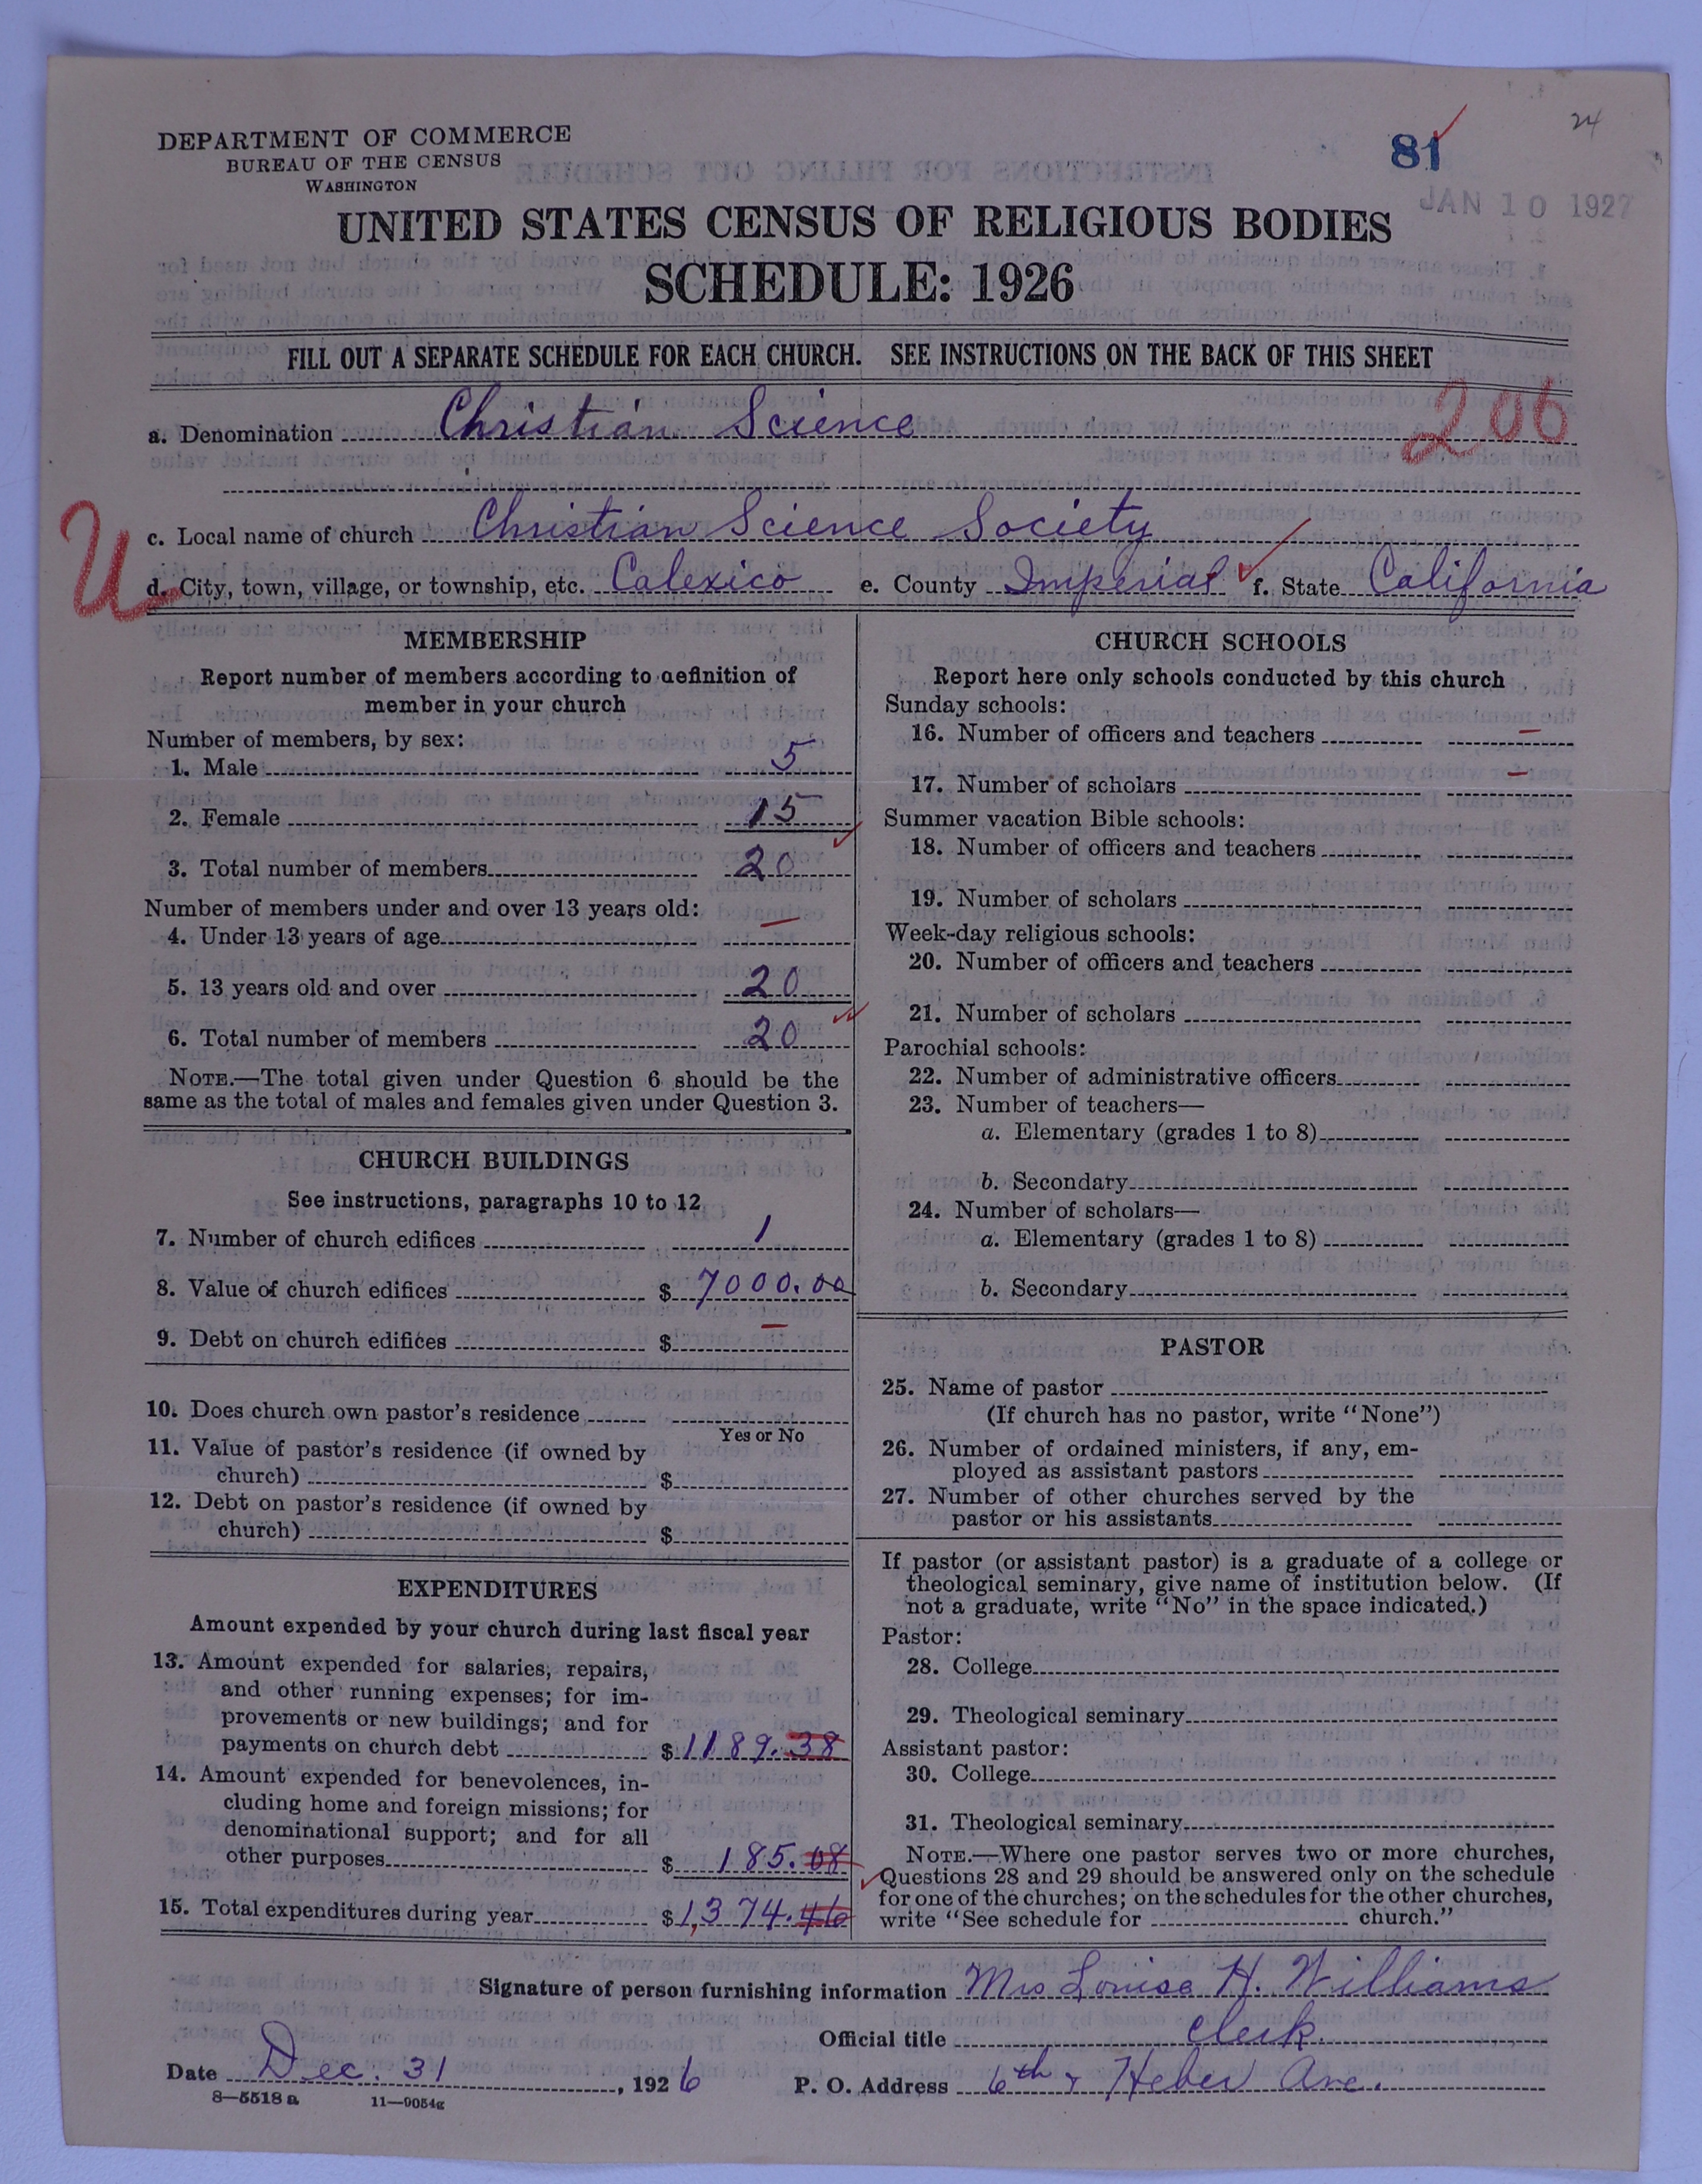 24
81
JAN 10 1927
DEPARTMENT OF COMMERCE
BUREAU OF THE CENSUS
WASHINGTON
UNITED STATES CENSUS OF RELIGIOUS BODIES
SCHEDULE: 1926
FILL OUT A SEPARATE SCHEDULE FOR EACH CHURCH. SEE INSTRUCTIONS ON THE BACK OF THIS SHEET
206
a. Denomination Christian Science
c. Local name of church Christian Science Society
U
d. City, town, village, or township, etc. Calexico e. County Imperial f. State California
MEMBERSHIP
Report number of members according to definition of
member in your church
Number of members, by sex:
1. Male 5
2. Female 15
3. Total number of members 20
Number of members under and over 13 years old:
4. Under 13 years of age —
5. 13 years old and over 20
6. Total number of members 20
NOTE.—The total given under Question 6 should be the
same as the total of males and females given under Question 3.
CHURCH BUILDINGS
See instructions, paragraphs 10 to 12
7. Number of church edifices 1
8. Value of church edifices $ 7000.00
9. Debt on church edifices $ —
10. Does church own pastor's residence
Yes or No
11. Value of pastor's residence (if owned by
church) $
12. Debt on pastor's residence (if owned by
church) $
EXPENDITURES
Amount expended by your church during last fiscal year
13. Amount expended for salaries, repairs,
and other running expenses; for im-
provements or new buildings; and for
payments on church debt $ 1189.38
14. Amount expended for benevolences, in-
cluding home and foreign missions; for
denominational support; and for all
other purposes $ 185.08
15. Total expenditures during year $ 1,374.46
CHURCH SCHOOLS
Report here only schools conducted by this church
Sunday schools:
16. Number of officers and teachers —
17. Number of scholars —
Summer vacation Bible schools:
18. Number of officers and teachers
19. Number of scholars
Week-day religious schools:
20. Number of officers and teachers
21. Number of scholars
Parochial schools:
22. Number of administrative officers
23. Number of teachers—
a. Elementary (grades 1 to 8)
b. Secondary
24. Number of scholars—
a. Elementary (grades 1 to 8)
b. Secondary
PASTOR
25. Name of pastor
(If church has no pastor, write "None")
26. Number of ordained ministers, if any, em-
ployed as assistant pastors
27. Number of other churches served by the
pastor or his assistants
If pastor (or assistant pastor) is a graduate of a college or
theological seminary, give name of institution below. (If
not a graduate, write "No" in the space indicated.)
Pastor:
28. College
29. Theological seminary
Assistant pastor:
30. College
31. Theological seminary
NOTE.—Where one pastor serves two or more churches,
Questions 28 and 29 should be answered only on the schedule
for one of the churches; on the schedules for the other churches,
write "See schedule for church."
Signature of person furnishing information Mrs Louise H. Williams
Official title Clerk.
Date Dec. 31, 1926 P. O. Address 6th & Heber Ave.
8—5518a 11—9054g